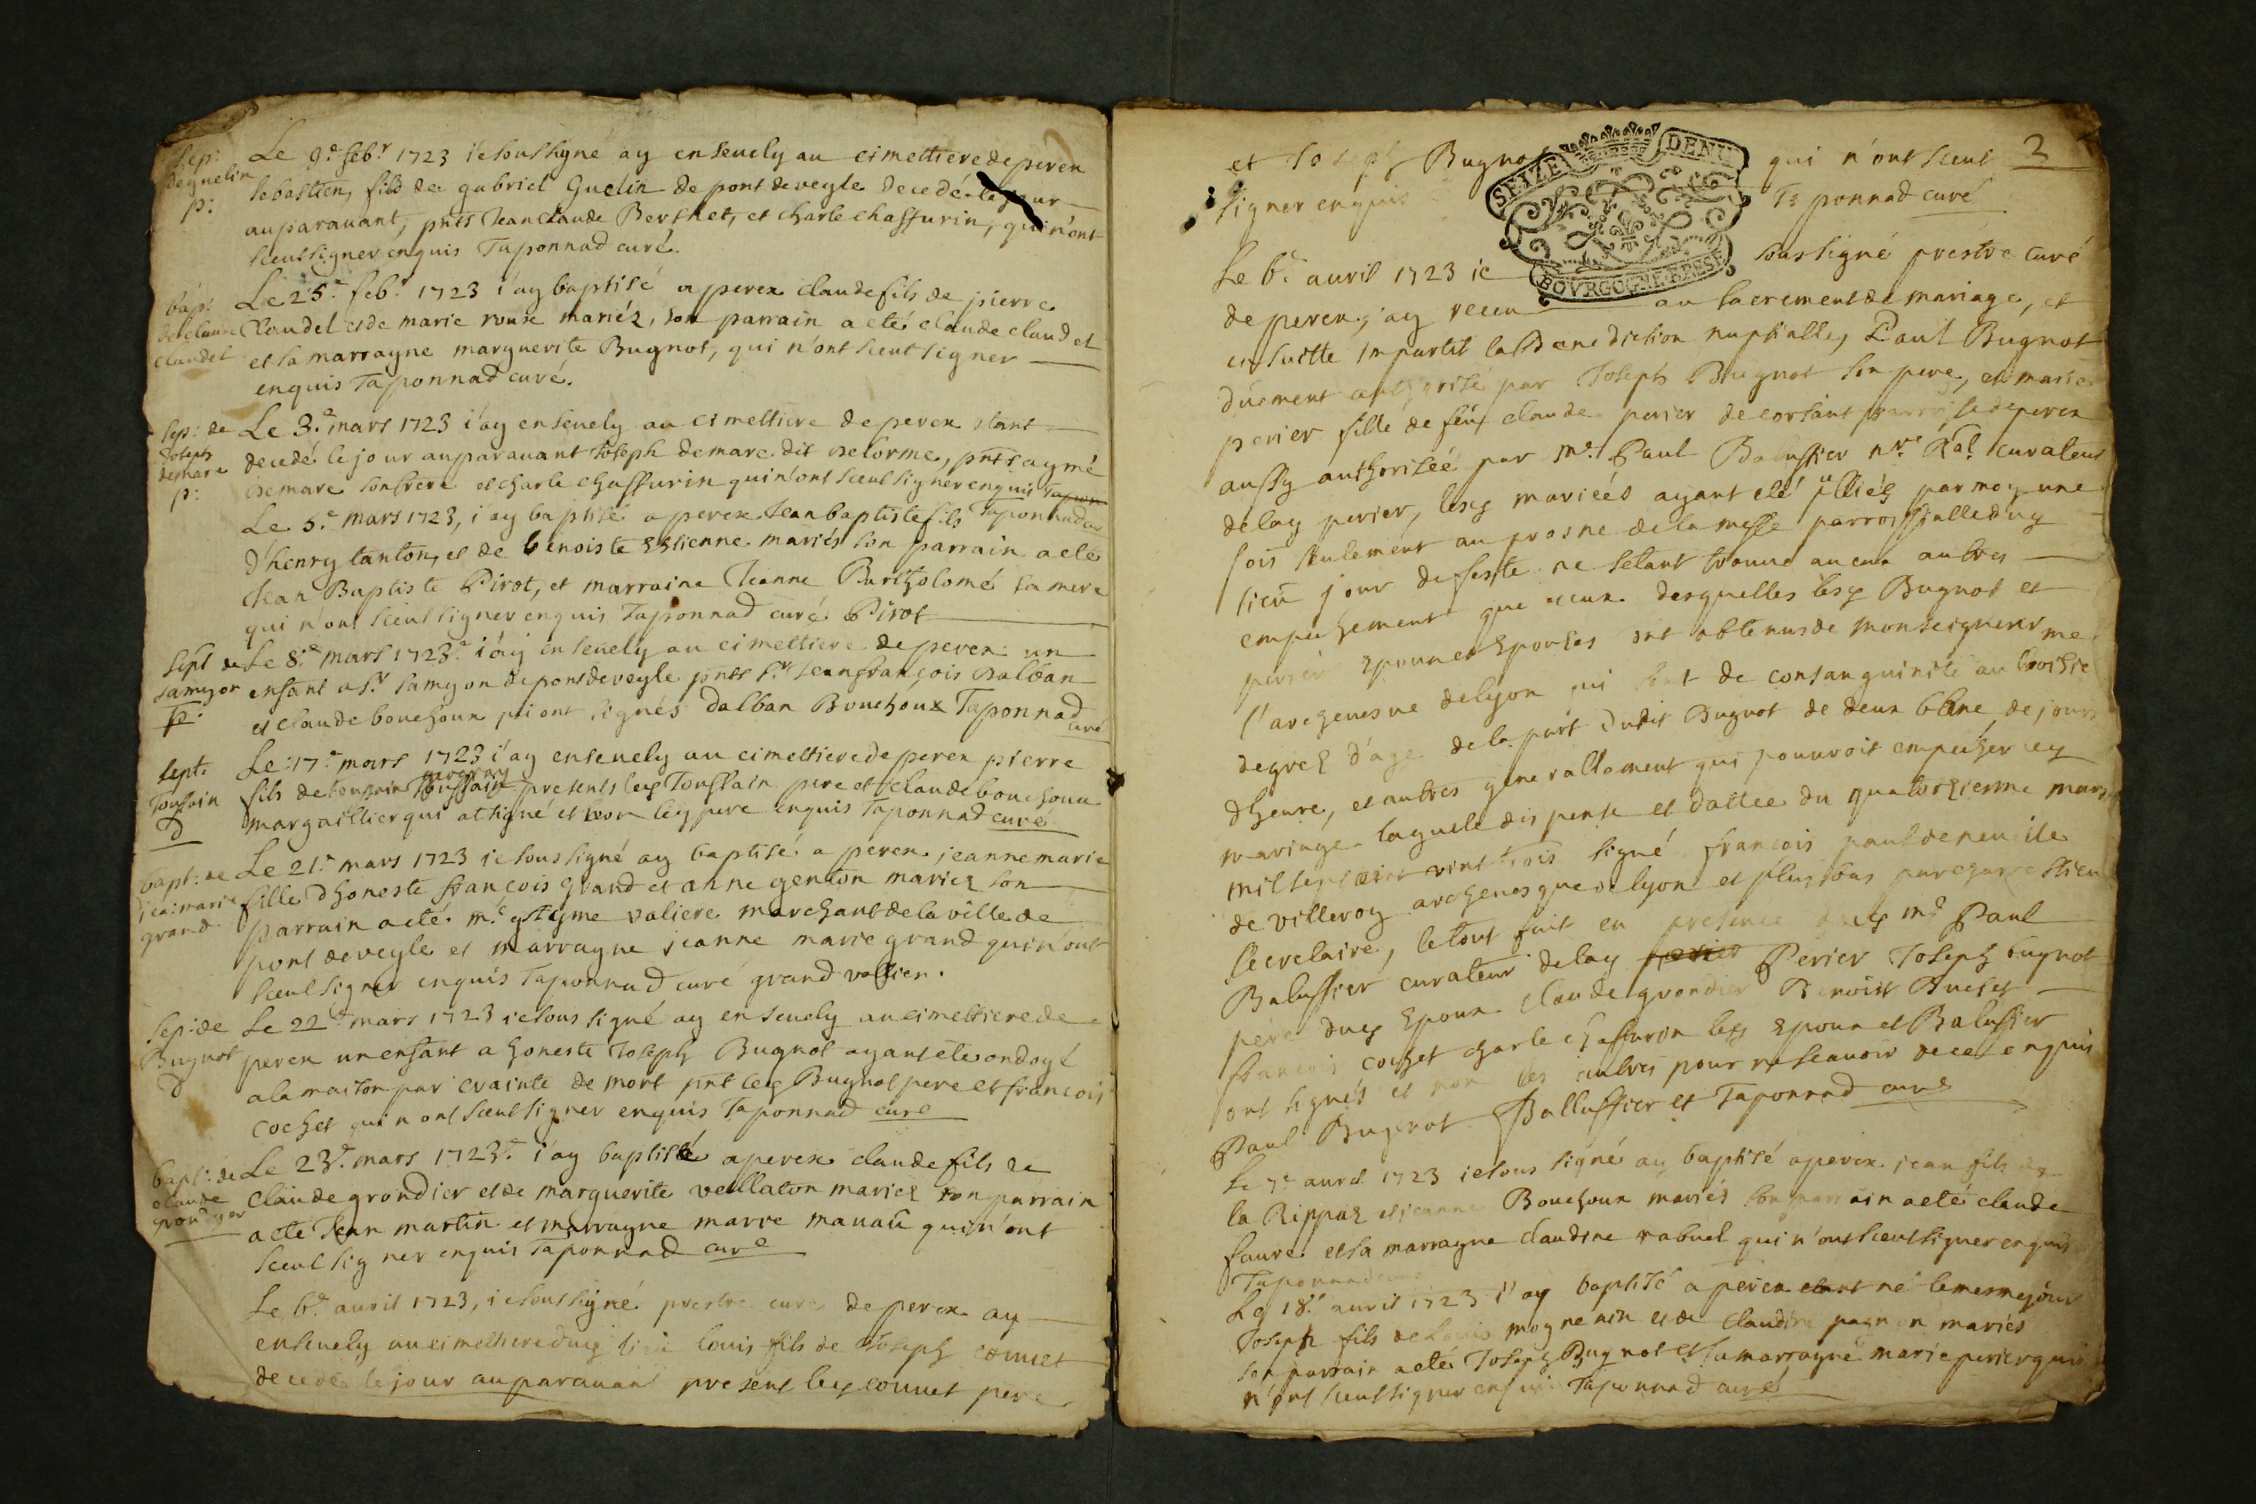 Sep:
de guelin
p:
Le 9.e feb.r 1723 ie soussigne ay enseuely au cimettiere de perex
sebastien, fils de gabriel Guelin de pont de veyle decedé le jour
auparauant, pnts Jean claude Berthet, et charle chaffurin, qui n'ont
sceut signer enquis Taponnad curé.
bap:
de claude
claudet
Le 25.e feb.r 1723 i'ay baptisé a perex claude fils de pierre
Claudet et de marie roux mariéz, son parrain a eté claude claudet
et sa marrayne marguerite Bugnot, qui n'ont sceut signer
enquis Taponnad curé.
Sep: de
Joseph
demare
p:
Le 3.e mars 1723 i'ay enseuely au cimettiere de perex etant
decedé le jour auparauant Joseph demare dit delorme, pnts aymé
demare son frere et charle chaffurin qui n'ont sceut signer enquis Tapon
Taponnad cu
Le 5.e mars 1723, i'ay baptisé a perex Jean baptiste fils
d'henry tanton, et de benoiste Estienne mariés son parrain a eté
Jean Baptiste Pirot, et marraine Jeanne Bartholomé sa mere
qui n'ont sceut signer enquis Taponnad curé Pirot
Sept de
samyon
p.
Le 8.e mars 1723.e i'ay enseuely au cimettiere de perex un
enfant a s.r samyon de pont de veyle pnts s.r Jean françois dalban
et claude bouchoux qui ont signés dalban Bouchoux Taponnad
curé
sept.
Toussain
D
Le 17.e mars 1723 i'ay enseuely au cimettiere de perex pierre
fils de toussain Toussain presents lesq Toussain pere et claude bouchoux
margaillier qui at signé et non leq pere enquis Taponnad curé
bapt: de
jea: marie
grand
Le 21.e mars 1723 ie soussigné ay baptisé a perex jeanne marie
fille d'honeste françois Grand et anne genton mariez son
parrain a eté m.e valiere marchant de la ville de
pont de veyle et marrayne jeanne marie grand qui n'ont
sceut signer enquis Taponnad curé grand vallier.
Sep: de
Bugnot
D
Le 22.e mars 1723 ie soussigné ay enseuely au cimettiere de
perex un enfant a honeste Joseph Bugnot ayant eté ondoyé
a la maison par crainte de mort pnt leq Bugnot pere et francois
cochet qui n'ont sceut signer enquis Taponnad curé
bapt: de
claude
grondyer
Le 23.e mars 1723.e i'ay baptisé a perex claude fils de
claude grondier et de marguerite veullaton mariez son parrain
a eté Jean martin et marrayne marie manau qui n'ont
sceut signer enquis Taponnad curé
Le 6.e auril 1723, ie soussigné prestre curé de perex ay
enseuely au cimettiere duq lieu louis fils de Joseph conuet
decedé le jour auparauant present leq conuet pere
3
et Joseph Bugnot qui n'ont sceut
signer enquis Taponnad curé
SEIZE DENI
BOVRGOGNE BRESE
Le 6.e auril 1723 ie soussigné prestre curé
de perex, j'ay receu au sacrement de mariage, et
ensuitte impartit la Benediction nuptialle, Paul Bugnot
düement authorisé par Joseph Bugnot son pere, et marie
perier fille de feu claude perier de corsant parroisse de perex
aussy authorisée par m.e Paul Baluffier n.re Ral curateur
de laq perier, lesq mariées ayant eté publiés par moy une
fois seulement au prosne de la messe parroissialle duq
lieu jour de feste ne setant trouué aucun autres
empechement que ceux desquelles lesq Bugnot et
perier Epoux et Epouses ont obtenus de Monseigneur
l'archeuesque de lyon qui sont de consanguinité au troisieme
degrez d'age de la part dudit Bugnot de deux de jours
d'heure, et autres generallement qui pouuoit empecher leq
mariage laquele dispense et dattée du quatorzieme mars
mil sept cent vint trois signé françois paul de neuuile
de villeroy archeuesque de lyon et plus bas par
secretaire, le tout fait en presence dudq m.e Paul
Baluffier curateur de laq perier Perier Joseph bugnot
pere duq Epoux claude grondier Benoist Buchet
francois cochet charle chaffurin lesq Epoux et Baluffier
ont signés et non les autres pour ne scauoir de ce enquis
Paul Bugnot Balluffier et Taponnad curé
Le 7.e auril 1723 ie soussigné ay baptisé a perex jean fils de
la Rippaz et jeanne Bouchoux mariés son parrain a eté claude
faure et sa marrayne claudine rabuel qui n'ont sceut signer enquis
Taponnad curé
Le 18.e auril 1723 i'ay baptisé a perex etant né le mesme jour
Joseph fils de Louis mognenin et de claudine pagnon mariés
son parrain a eté Joseph Bugnot et sa marrayne marie perier qui
n'ont sceut signer enquis Taponnad curé